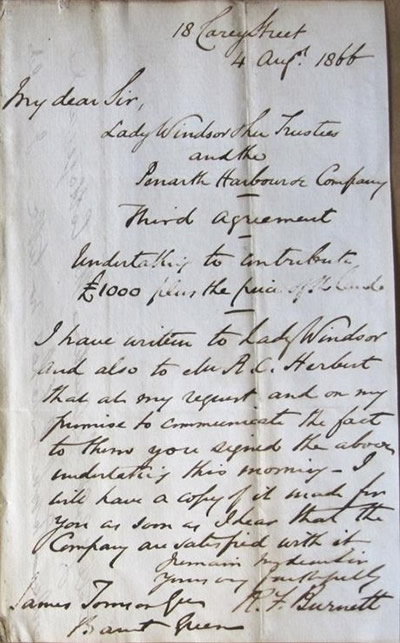 18 Carey Street
4 Augst 1866
My dear Sir,
Lady Windsor & her Trustees
and the
Penarth Harbour &c Company
Third Agreement
Undertaking to contribute
£1000 plus the price of the land
I have written to Lady Windsor
and also to Mr R.C. Herbert
that at my request and on my
promise to communicate the fact
to them you signed the above
undertaking this morning - I
will have a copy of it made for
you as soon as I hear that the
Company are satisfied with it
I remain my dear Sir
Yours very faithfully
R. F. Burnett
James Tomson
Green